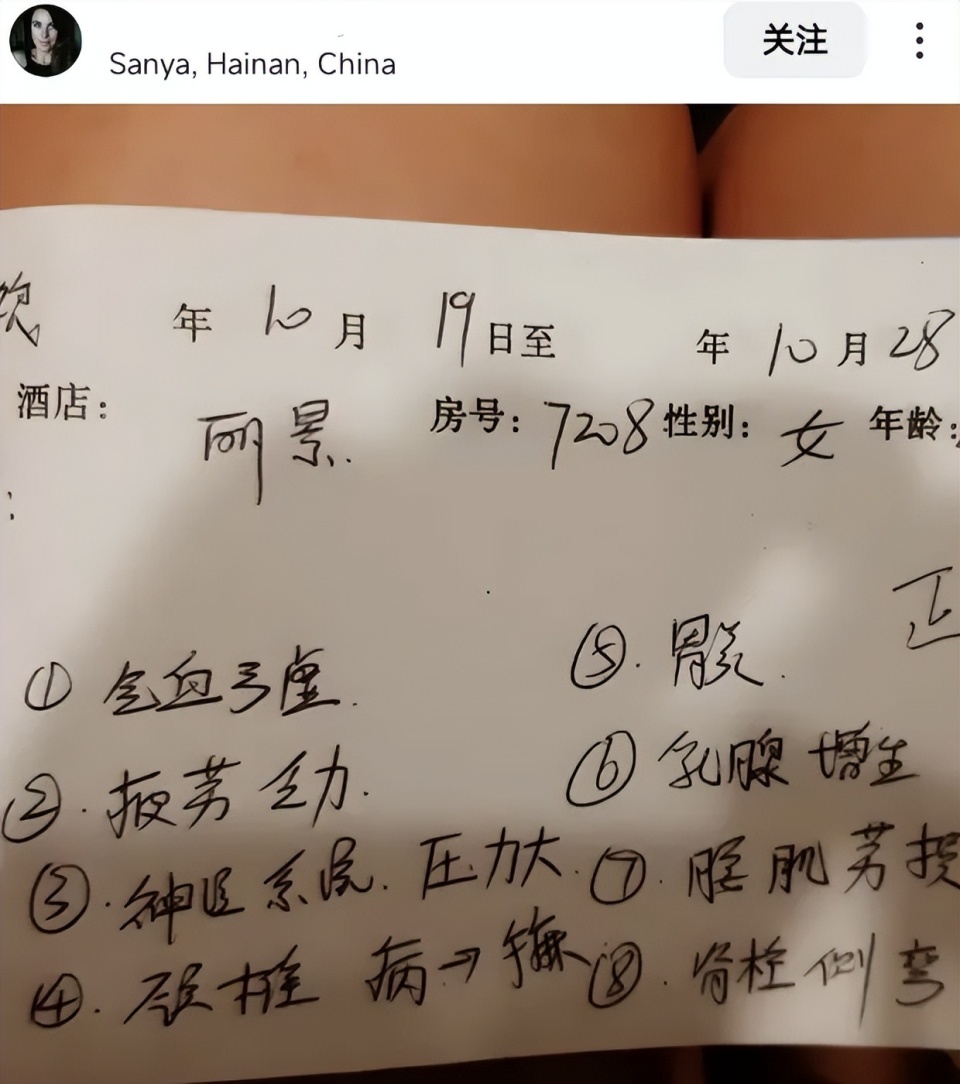 Sanya, Hainan, China
关注
年 10 月 19 日至 年 10 月 28
酒店： 丽景. 房号：7208 性别：女 年龄：
：
正
① 气血亏虚.
⑤. 胃炎.
②. 疲劳乏力.
⑥ 乳腺增生
③. 神经系统. 压力大.
⑦. 腰肌劳损
④. 颈椎病→
⑧. 脊柱侧弯